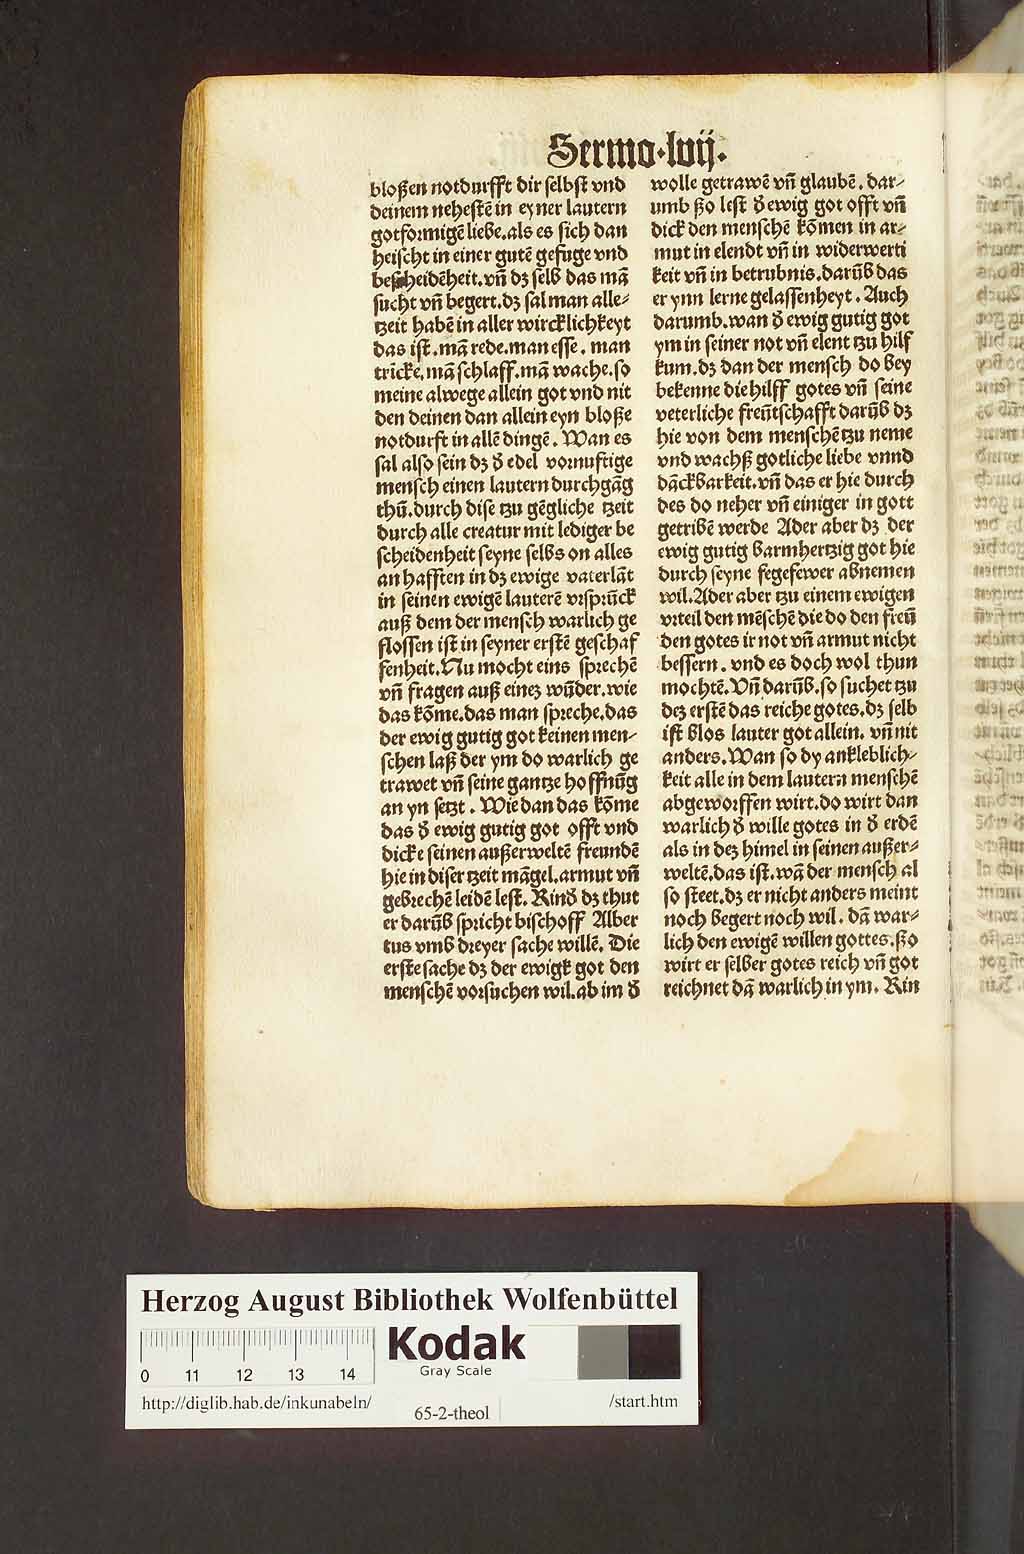 Sermo·lvij.
bloßen notdurfft dir selbst vnd
deinem nehestē in eyner lautern
gotformigē liebe.als es sich dan
heischt in einer gutē gefuge vnd
bescheidēheit.vn̄ dz selb das mā
sucht vn̄ begert.dz sal man alle⸗
tzeit habē in aller wircklichkeyt
das ist.mā rede.man esse. man
trīcke.mā schlaff.mā wache.so
meine alwege allein got vnd nit
den deinen dan allein eyn bloße
notdurft in allē dingē. Wan es
sal also sein dz ď edel vornuftige
mensch einen lautern durchgāg
thū.durch dise tzu gēgliche tzeit
durch alle creatur mit lediger be
scheidenheit seyne selbs on alles
an hafften in dz ewige vaterlāt
in seinen ewigē lauterē vrsprūck
auß dem der mensch warlich ge
flossen ist in seyner erstē geschaf
fenheit.Nu mocht eins sprechē
vn̄ fragen auß einez wūder.wie
das kōme.das man spreche.das
der ewig gutig got keinen men⸗
schen laß der ym do warlich ge
trawet vn̄ seine gantze hoffnūg
an yn setzt. Wie dan das kōme
das ď ewig gutig got offt vnd
dicke seinen außerweltē freundē
hie in diser tzeit māgel.armut vn̄
gebrechē leidē lest. Rinď dz thut
er darūb spricht bischoff Alber
tus vmb dreyer sache willē. Die
erste sache dz der ewigk got den
menschē vorsuchen wil.ab im ď
wolle getrawē vn̄ glaubē. dar⸗
umb ßo lest ď ewig got offt vn̄
dick den menschē kōmen in ar⸗
mut in elendt vn̄ in widerwerti
keit vn̄ in betrubnis.darūb das
er ynn lerne gelassenheyt. Auch
darumb.wan ď ewig gutig got
ym in seiner not vn̄ elent tzu hilf
kum.dz dan der mensch do bey
bekenne die hilff gotes vn̄ seine
veterliche freūtschafft darūb dz
hie von dem menschē tzu neme
vnd wachß gotliche liebe vnnd
dāckbarkeit.vn̄ das er hie durch
des do neher vn̄ einiger in gott
getribē werde Ader aber dz der
ewig gutig barmhertzig got hie
durch seyne fegefewer abnemen
wil.Ader aber tzu einem ewigen
vrteil den mēschē die do den freū
den gotes ir not vn̄ armut nicht
bessern. vnd es doch wol thun
mochtē.Vn̄ darūb.so suchet tzu
dez erstē das reiche gotes.dz selb
ist blos lauter got allein. vn̄ nit
anders.Wan so dy ankleblich⸗
keit alle in dem lautern menschē
abgeworffen wirt.do wirt dan
warlich ď wille gotes in ď erdē
als in dez himel in seinen außer⸗
weltē.das ist.wā der mensch al
so steet.dz er nicht anders meint
noch begert noch wil. dā war⸗
lich den ewigē willen gottes.ßo
wirt er selber gotes reich vn̄ got
reichnet dā warlich in ym. Rin
Herzog August Bibliothek Wolfenbüttel
Kodak
Gray Scale
0 11 12 13 14
http://diglib.hab.de/inkunabeln/
65-2-theol
/start.htm